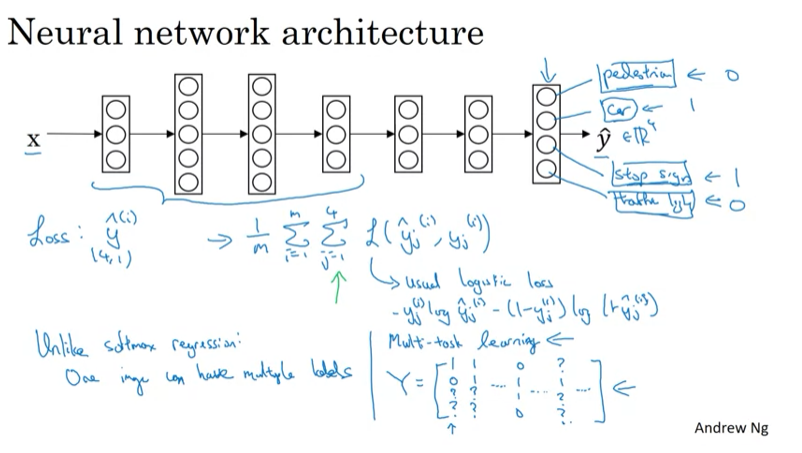 Neural network architecture
pedestrian ← 0
car ← 1
x
ŷ ∈ ℝ⁴
stop sign ← 1
traffic light ← 0
Loss: ŷ^(i) → 1/m Σ_{i=1}^{m} Σ_{j=1}^{4} L(ŷ_j^(i), y_j^(i))
(4,1)
usual logistic loss
-y_j^(i) log ŷ_j^(i) - (1-y_j^(i)) log (1-ŷ_j^(i))
Unlike softmax regression:
One image can have multiple labels
Multi-task learning ←
Y = [ 1 1 0 ?
0 1 .... 1 .... 1 .... ] ←
? ? 1 ?
? ? 0 ?
Andrew Ng